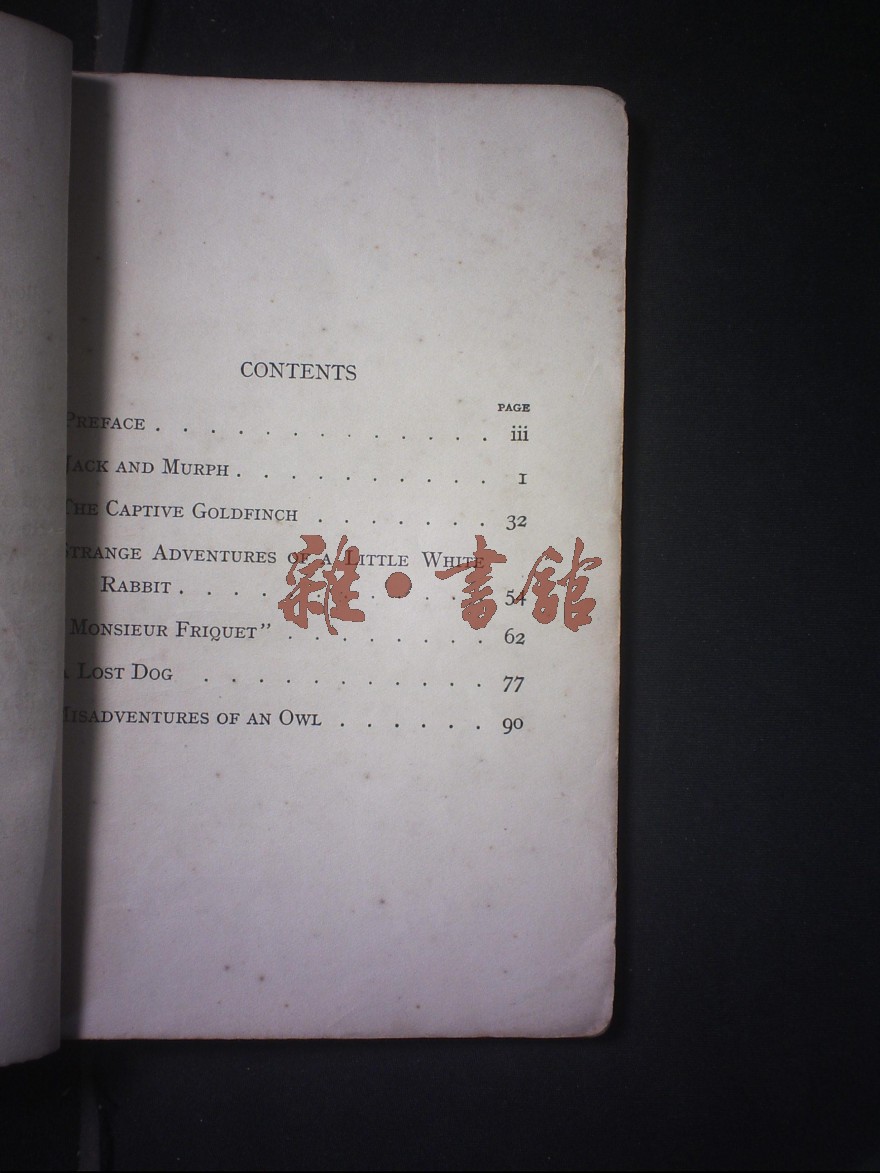 CONTENTS
PAGE
PREFACE . . . . . . . . . . . . . iii
JACK AND MURPH . . . . . . . . . . 1
THE CAPTIVE GOLDFINCH . . . . . . . 32
STRANGE ADVENTURES OF A LITTLE WHITE
RABBIT . . . . . . . . . . . . 54
MONSIEUR FRIQUET" . . . . . . . . 62
A LOST DOG . . . . . . . . . . . 77
MISADVENTURES OF AN OWL . . . . . . 90
雜·書館